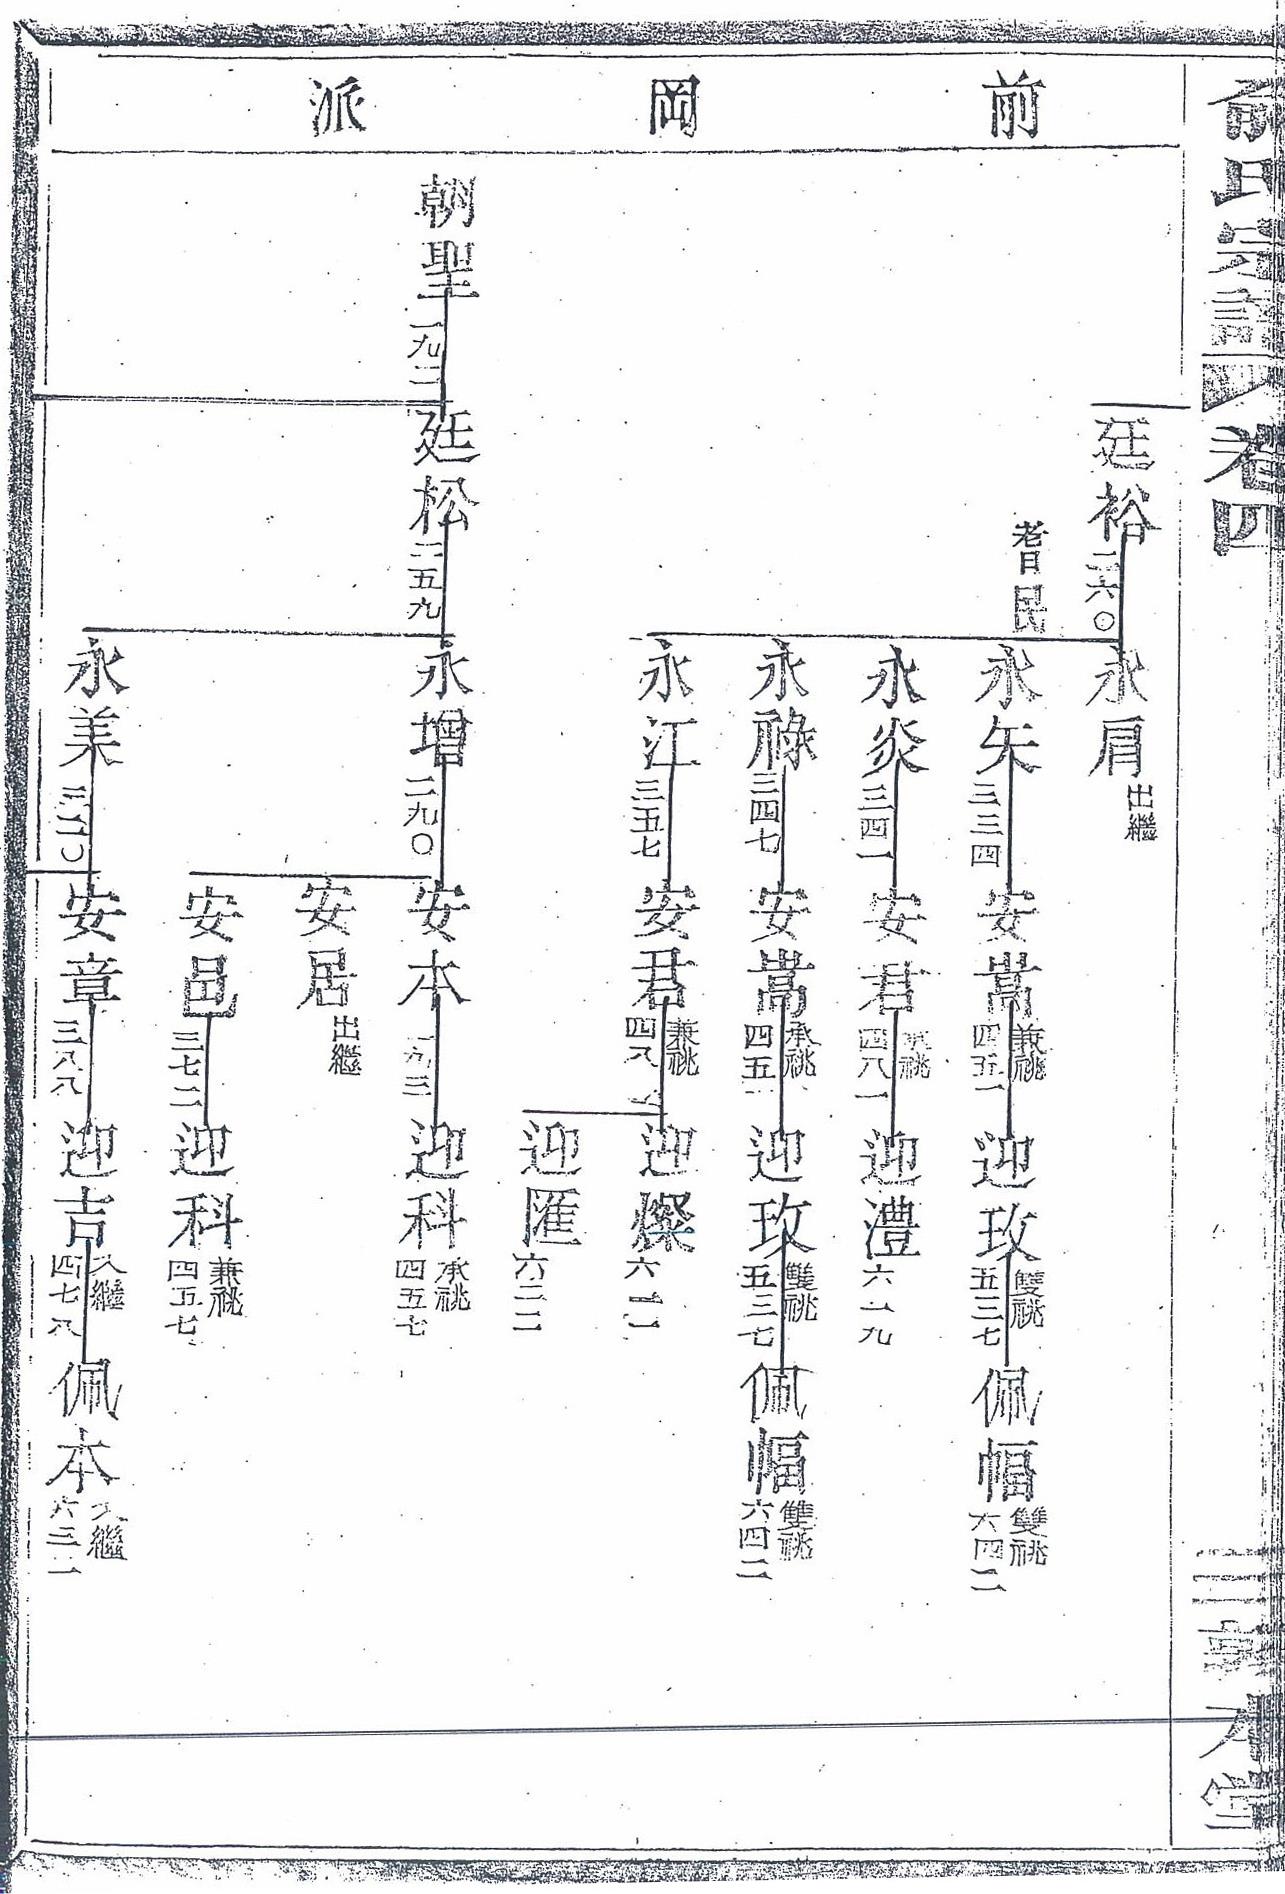 俞氏宗譜
卷四
三
本堂
前岡派
廷裕 二六〇
永肩 出繼
耆民
永矢 三三四
安嵩 兼祧 四五一
迎玫 雙祧 五三七
佩幅 雙祧 六四二
永炎 三四一
安君 祧 四八一
迎澧 六一九
永祿 三四七
安嵩 承祧 四五一
迎玫 雙祧 五三七
佩幅 雙祧 六四二
永江 三五七
安君 兼祧 四八
迎燦 六二一
迎匯 六二二
朝聖 一九二
廷松 二五九
永增 二九〇
安本
迎科 承祧 四五七
安居 出繼
安邑 三七二
迎科 兼祧 四五七
永美 三二〇
安章 三八八
迎吉 入繼 四七八
佩本 入繼 六三一